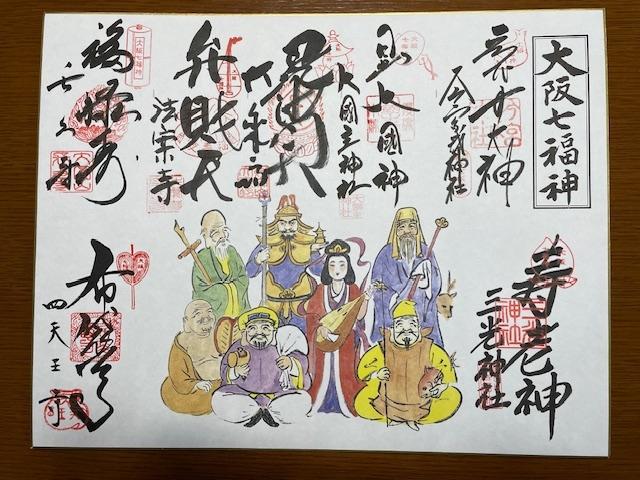 大阪七福神
大神
今宮戎神社
大國神
大國主神社
毘沙門天
大乗坊
弁財天
法案寺
福禄寿
長久寺
寿老神
三光神社
布袋尊
四天王寺